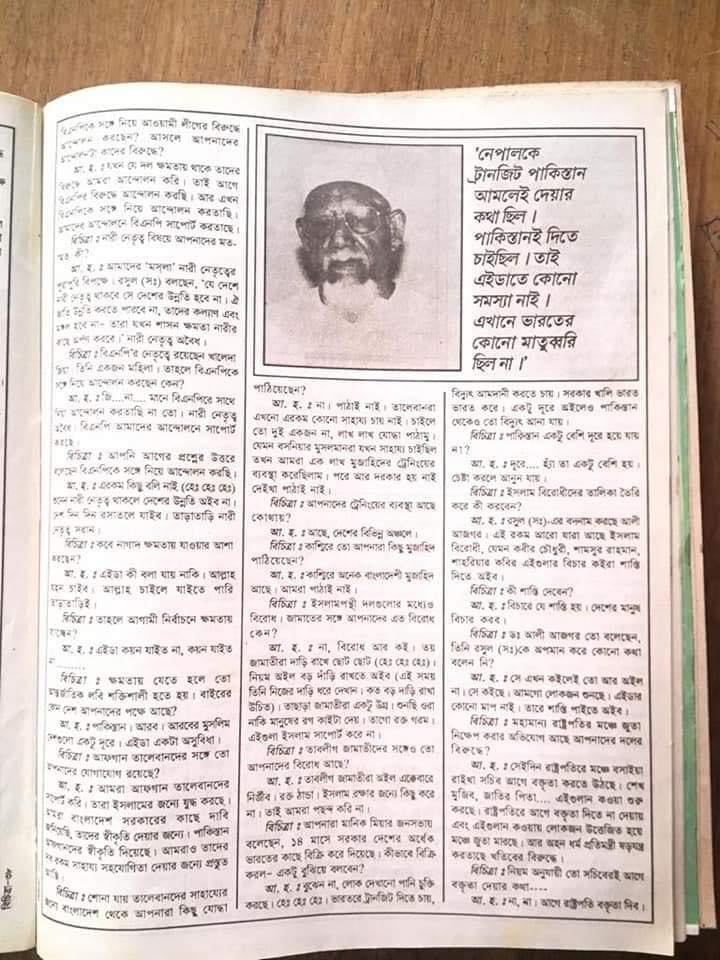 বিএনপিকে সঙ্গে নিয়ে আওয়ামী লীগের বিরুদ্ধে
আন্দোলন করছেন? আসলে আপনাদের
আন্দোলনটা কাদের বিরুদ্ধে?
আ. হ. ঃ যখন যে দল ক্ষমতায় থাকে তাদের
বিরুদ্ধে আমরা আন্দোলন করি। তাই আগে
বিএনপির বিরুদ্ধে আন্দোলন করছি। আর এখন
বিএনপিকে সঙ্গে নিয়ে আন্দোলন করতাছি।
আমাদের আন্দোলনে বিএনপি সাপোর্ট করতাছে।
বিচিত্রা ঃ নারী নেতৃত্ব বিষয়ে আপনাদের মত-
মত কী?
আ. হ. ঃ আমাদের 'মসলা' নারী নেতৃত্বের
পুরাপুরি বিপক্ষে। রসুল (সঃ) বলছেন, 'যে দেশে
নারী নেতৃত্ব থাকবে সে দেশের উন্নতি হবে না। ঐ
জাতি উন্নতি করতে পারবে না, তাদের কল্যাণ এবং
মঙ্গল হবে না– তারা যখন শাসন ক্ষমতা নারীর
কাছে অর্পণ করবে।' নারী নেতৃত্ব অবৈধ।
বিচিত্রা ঃ বিএনপি'র নেতৃত্বে রয়েছেন খালেদা
জিয়া তিনি একজন মহিলা। তাহলে বিএনপিকে
সঙ্গে নিয়ে আন্দোলন করছেন কেন?
আ. হ. ঃ জি....না.... মানে বিএনপিরে সাথে
নিয়া আন্দোলন করতাছি না তো। নারী নেতৃত্ব
অবৈধ। বিএনপি আমাদের আন্দোলনে সাপোর্ট
করছে।
বিচিত্রা ঃ আপনি আগের প্রশ্নের উত্তরে
বলেছেন বিএনপিকে সঙ্গে নিয়ে আন্দোলন করছি।
আ. হ. ঃ এরকম কিছু বলি নাই (হেঃ হেঃ হেঃ)
নারী নেতৃত্ব থাকলে দেশের উন্নতি অইব না।
দেশ দিন দিন রসাতলে যাইব। তাড়াতাড়ি নারী
নেতৃত্ব সরান।
বিচিত্রা ঃ কবে নাগাদ ক্ষমতায় যাওয়ার আশা
করছেন?
আ. হ. ঃ এইডা কী বলা যায় নাকি। আল্লাহ
যহন চাইব। আল্লাহ চাইলে যাইতে পারি
তাড়াতাড়িই।
বিচিত্রা ঃ তাহলে আগামী নির্বাচনে ক্ষমতায়
যাচ্ছেন?
আ. হ. ঃ এইডা কয়ন যাইত না, কয়ন যাইত
না........
বিচিত্রা ঃ ক্ষমতায় যেতে হলে তো
আন্তর্জাতিক লবি শক্তিশালী হতে হয়। বাইরের
কোন দেশ আপনাদের পক্ষে আছে?
আ. হ. ঃ পাকিস্তান। আরব। আরবের মুসলিম
দেশগুলো একটু দূরে। এইডা একটা অসুবিধা।
বিচিত্রা ঃ আফগান তালেবানদের সঙ্গে তো
আপনাদের যোগাযোগ রয়েছে?
আ. হ. ঃ আমরা আফগান তালেবানদের
সাপোর্ট করি। তারা ইসলামের জন্যে যুদ্ধ করছে।
আমরা বাংলাদেশ সরকারের কাছে দাবি
জানিয়েছি, তাদের স্বীকৃতি দেয়ার জন্যে। পাকিস্তান
স্বীকৃতি দিয়েছে। আমরাও তাদের
সব রকম সাহায্য সহযোগিতা দেয়ার জন্যে প্রস্তুত
আছি।
বিচিত্রা ঃ শোনা যায় তালেবানদের সাহায্যের
জন্যে বাংলাদেশ থেকে আপনারা কিছু যোদ্ধা
'নেপালকে
ট্রানজিট পাকিস্তান
আমলেই দেয়ার
কথা ছিল।
পাকিস্তানই দিতে
চাইছিল। তাই
এইডাতে কোনো
সমস্যা নাই।
এখানে ভারতের
কোনো মাতুব্বরি
ছিল না।'
পাঠিয়েছেন?
আ. হ. ঃ না। পাঠাই নাই। তালেবানরা
এখনো এরকম কোনো সাহায্য চায় নাই। চাইলে
তো দুই একজন না, লাখ লাখ যোদ্ধা পাঠামু।
যেমন বসনিয়ার মুসলমানরা যখন সাহায্য চাইছিল
তখন আমরা এক লাখ মুজাহিদের ট্রেনিংয়ের
ব্যবস্থা করেছিলাম। পরে আর দরকার হয় নাই
দেইখা পাঠাই নাই।
বিচিত্রা ঃ আপনাদের ট্রেনিংয়ের ব্যবস্থা আছে
কোথায়?
আ. হ. ঃ আছে, দেশের বিভিন্ন অঞ্চলে।
বিচিত্রা ঃ কাশ্মিরে তো আপনারা কিছু মুজাহিদ
পাঠিয়েছেন?
আ. হ. ঃ কাশ্মিরে অনেক বাংলাদেশী মুজাহিদ
আছে। আমরা পাঠাই নাই।
বিচিত্রা ঃ ইসলামপন্থী দলগুলোর মধ্যেও
বিরোধ। জামাতের সঙ্গে আপনাদের এত বিরোধ
কেন?
আ. হ. ঃ না, বিরোধ আর কই। তয়
জামাতীরা দাড়ি রাখে ছোট ছোট (হেঃ হেঃ হেঃ)।
নিয়ম অইল বড় দাঁড়ি রাখতে অইব (এই সময়
তিনি নিজের দাড়ি ধরে দেখান। কত বড় দাড়ি রাখা
উচিত)। তাছাড়া জামাতীরা একটু উগ্র। শুনছি ওরা
নাকি মানুষের রগ কাইটা দেয়। তাগো রক্ত গরম।
এইগুলা ইসলাম সাপোর্ট করে না।
বিচিত্রা ঃ তাবলীগ জামাতীদের সঙ্গেও তো
আপনাদের বিরোধ আছে?
আ. হ. ঃ তাবলীগ জামাতীরা অইল এক্কেবারে
নির্জীব। রক্ত ঠান্ডা। ইসলাম রক্ষার জন্যে কিছু করে
না। তাই আমরা পছন্দ করি না।
বিচিত্রা ঃ আপনারা মানিক মিয়ার জনসভায়
বলেছেন, ১৪ মাসে সরকার দেশের অর্ধেক
ভারতের কাছে বিক্রি করে দিয়েছে। কীভাবে বিক্রি
করল– একটু বুঝিয়ে বলবেন?
আ. হ. ঃ বুঝেন না, লোক দেখানো পানি চুক্তি
করছে। হেঃ হেঃ হেঃ। ভারতরে ট্রানজিট দিতে চায়,
বিদ্যুৎ আমদানী করতে চায়। সরকার খালি ভারত
ভারত করে। একটু দূরে অইলেও পাকিস্তান
থেকেও তো বিদ্যুৎ আনা যায়।
বিচিত্রা ঃ পাকিস্তান একটু বেশি দূরে হয়ে যায়
না?
আ. হ. ঃ দূরে.... হ্যাঁ তা একটু বেশি হয়।
চেষ্টা করলে আনুন যায়।
বিচিত্রা ঃ ইসলাম বিরোধীদের তালিকা তৈরি
করে কী করবেন?
আ. হ. ঃ রসুল (সঃ)-এর বদনাম করছে আলী
আজগর। এই রকম আরো যারা আছে ইসলাম
বিরোধী, যেমন কবীর চৌধুরী, শামসুর রাহমান,
শাহরিয়ার কবির এইগুলার বিচার কইরা শাস্তি
দিতে অইব।
বিচিত্রা ঃ কী শাস্তি দেবেন?
আ. হ. ঃ বিচারে যে শাস্তি হয়। দেশের মানুষ
বিচার করব।
বিচিত্রা ঃ ডঃ আলী আজগর তো বলেছেন,
তিনি রসুল (সঃ)কে অপমান করে কোনো কথা
বলেন নি?
আ. হ. ঃ সে এখন কইলেই তো আর অইল
না। সে কইছে। আমগো লোকজন শুনছে। এইডার
কোনো মাপ নাই। তারে শাস্তি পাইতে অইব।
বিচিত্রা ঃ মহামান্য রাষ্ট্রপতির মঞ্চে জুতা
নিক্ষেপ করার অভিযোগ আছে আপনাদের দলের
বিরুদ্ধে?
আ. হ. ঃ সেইদিন রাষ্ট্রপতিরে মঞ্চে বসাইয়া
রাইখা সচিব আগে বক্তৃতা করতে উঠছে। শেখ
মুজিব, জাতির পিতা.... এইগুলান কওয়া শুরু
করছে। রাষ্ট্রপতিরে আগে বক্তৃতা দিতে না দেয়ায়
এবং এইগুলান কওয়ায় লোকজন উত্তেজিত হয়ে
মঞ্চে জুতা মারছে। আর অহন ধর্ম প্রতিমন্ত্রী ষড়যন্ত্র
করতাছে খতিবের বিরুদ্ধে।
বিচিত্রা ঃ নিয়ম অনুযায়ী তো সচিবেরই আগে
বক্তৃতা দেয়ার কথা----
আ. হ. ঃ না, না। আগে রাষ্ট্রপতি বক্তৃতা দিব।